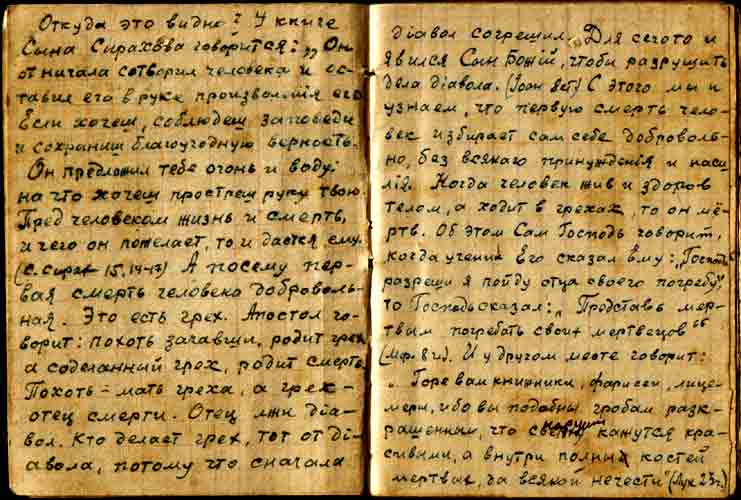 Откуда это видно? У книге
Сына Сирахова говорится: „Он
от начала сотворил человека и ос-
тавил его в руке произволенія его
Если хочеш, соблюдеш заповеди
и сохраниш благоугодную верность.
Он предложил тебе огонь и воду:
на что хочеш простреш руку твою
Пред человеком жизнь и смерть,
и чего он пожелает, то и дастся ему.
(с. Сирах 15, 14-17) А посему пер-
вая смерть человека доброволь-
ная. Это есть грех. Апостол го-
ворит: похоть зачавши, родит грех
а соделанный грех, родит смерть.
Похоть - мать греха, а грех -
отец смерти. Отец лжи діа-
вол. Кто делает грех, тот от ді-
авола, потому что сначала
діавол согрешил. Для сего то и
явился Сын Божій, чтобы разрушить
дела діавола. (Іоан) С этого мы и
узнаем, что первую смерть чело-
век избирает сам себе доброволь-
но, без всякаго принужденія и наси
лія. Когда человек жив и здоров
телом, а ходит в грехах, то он мё-
ртв. Об этом Сам Господь говорит,
когда ученик Его сказал Ему: „Господь
разреши я пойду отца своего погребу",
то Господь сказал: „Представь мер-
твым погребать своих мертвецов"
(Мф. 8 гл). И у другом месте говорит:
„Горе вам книжники, фарисеи, лице-
мери, ибо вы подобны гробам разк-
рашенным, что наружи кажутся кра-
сивыми, а внутри полны костей
мертвых, да всякой нечести" (Лук 23 г.)